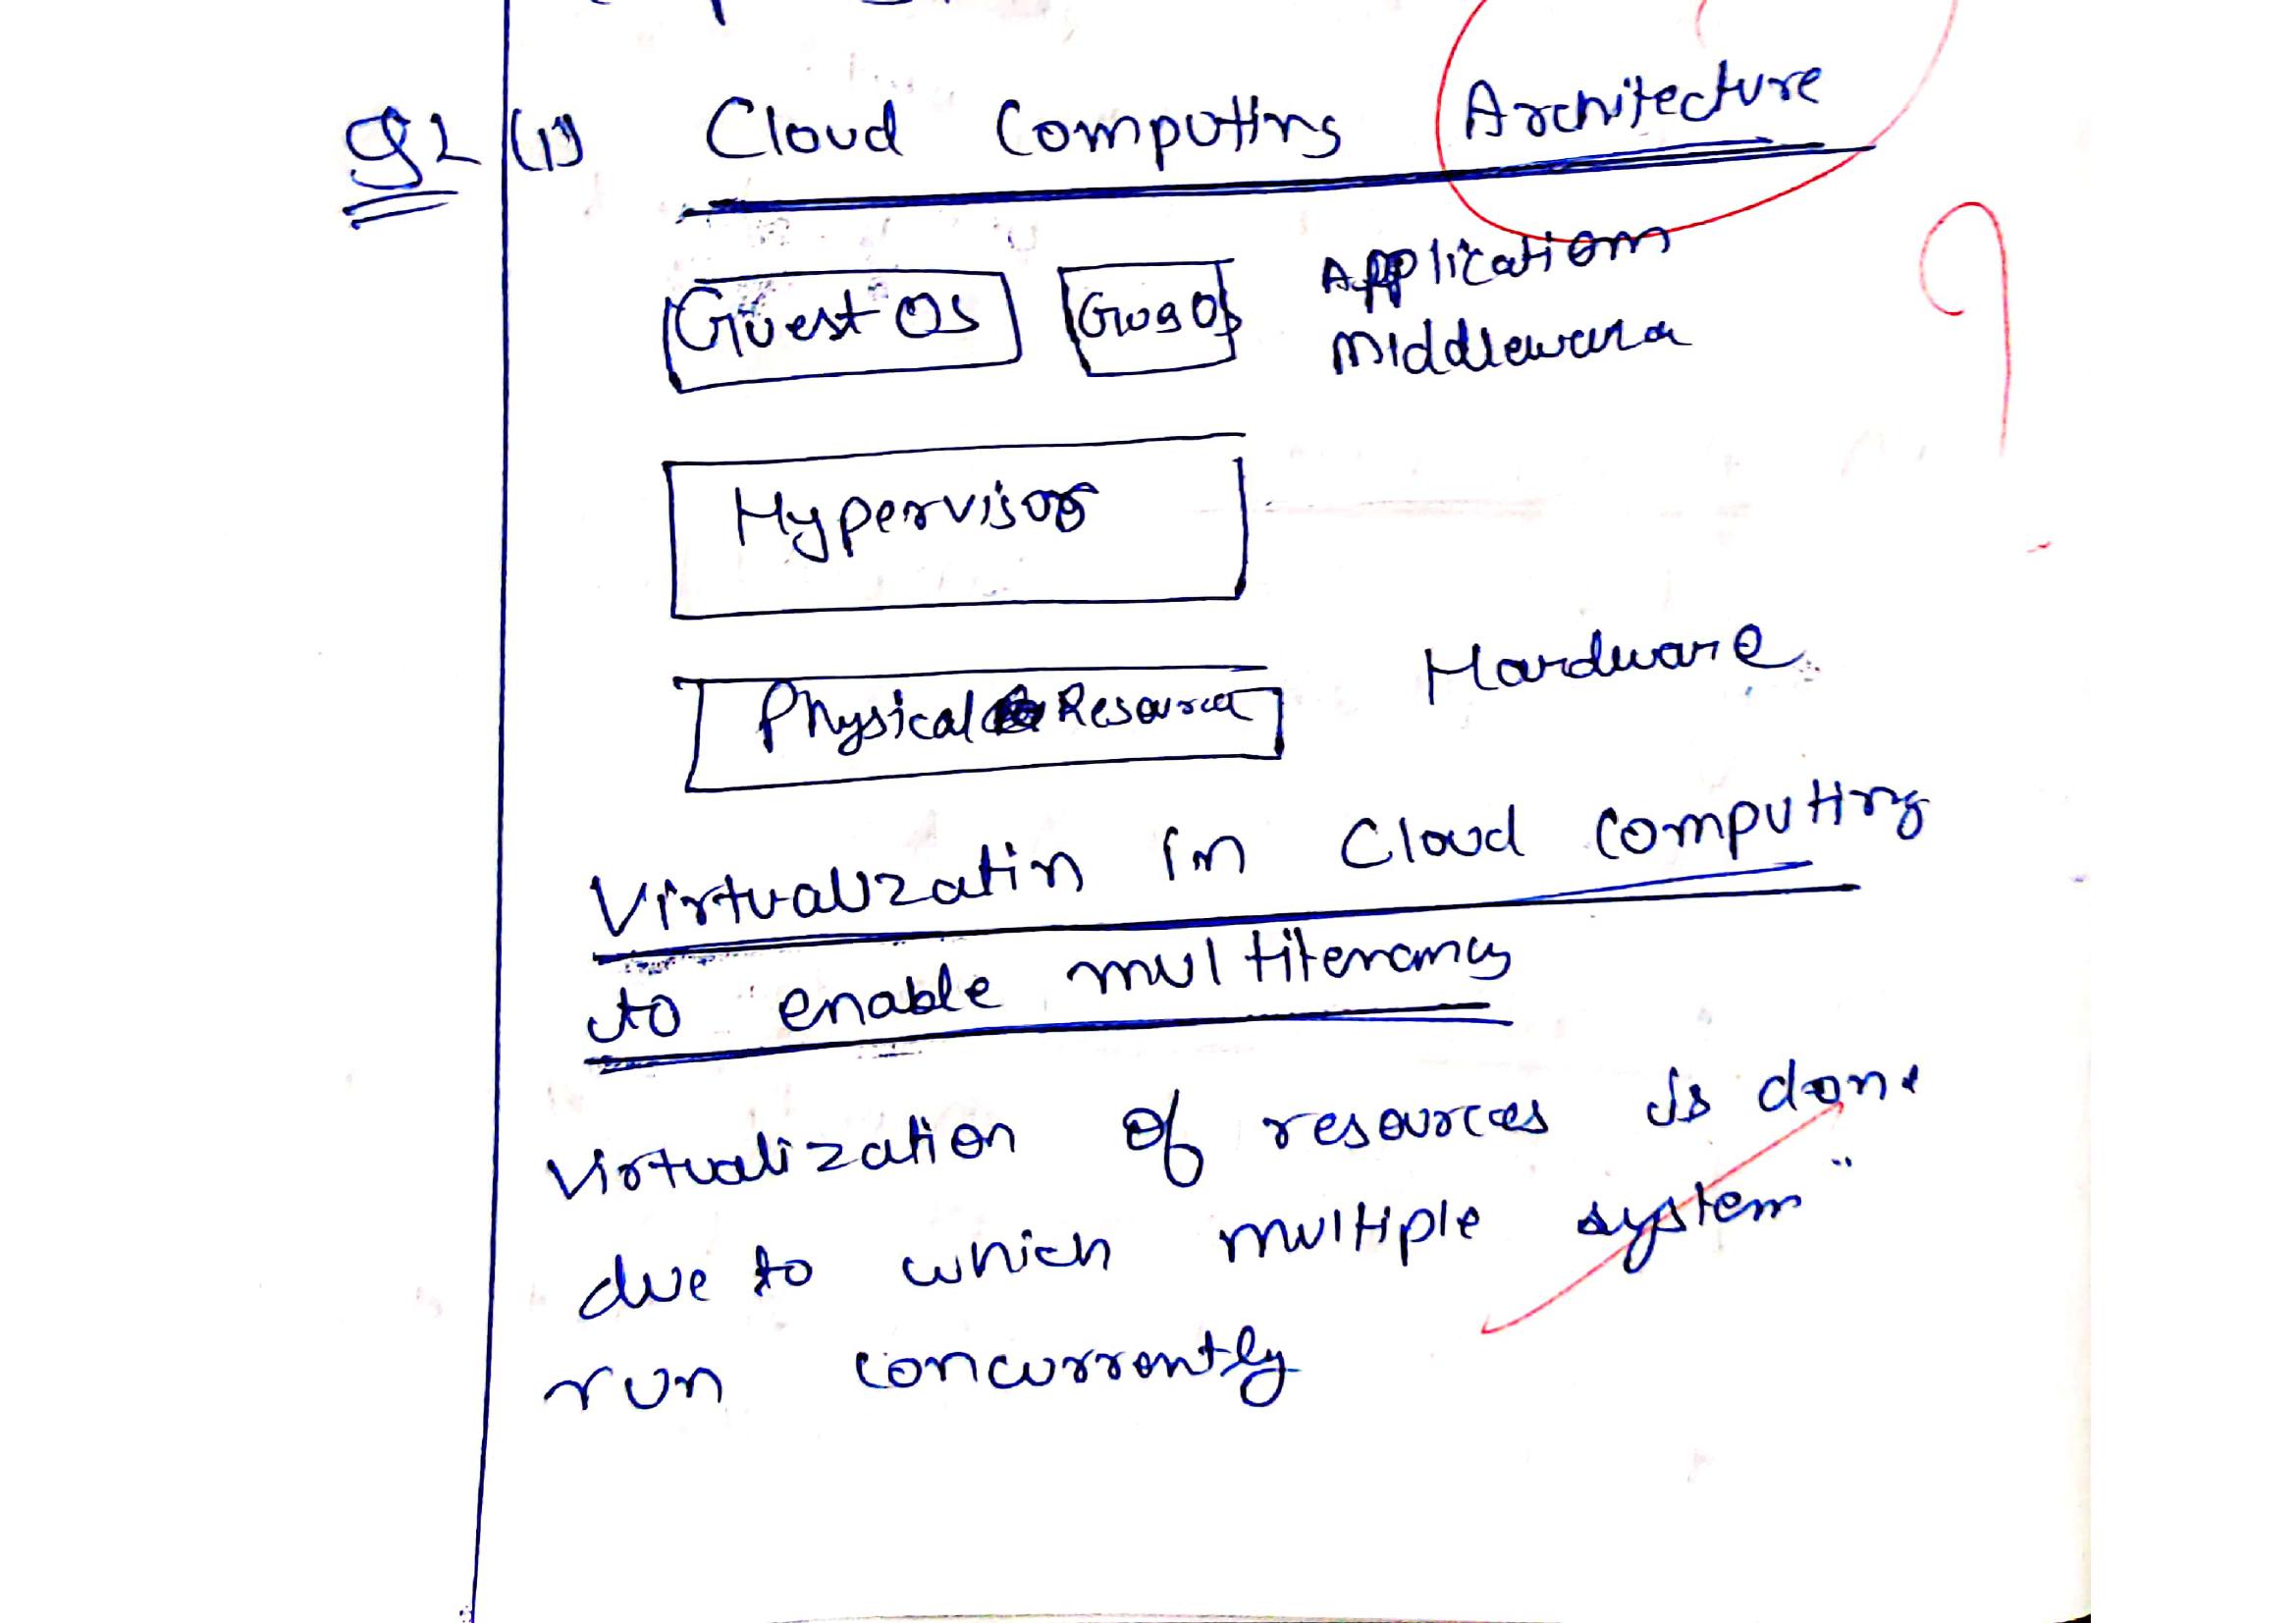 Q2 (1) Cloud Computing Architecture
Guest OS Application
Middleware
Hypervisor
Hardware
Physical Resource
Virtualizatin in Cloud computing
to enable multitenancy
Virtualization of resources is done
due to which multiple system
run concurrently